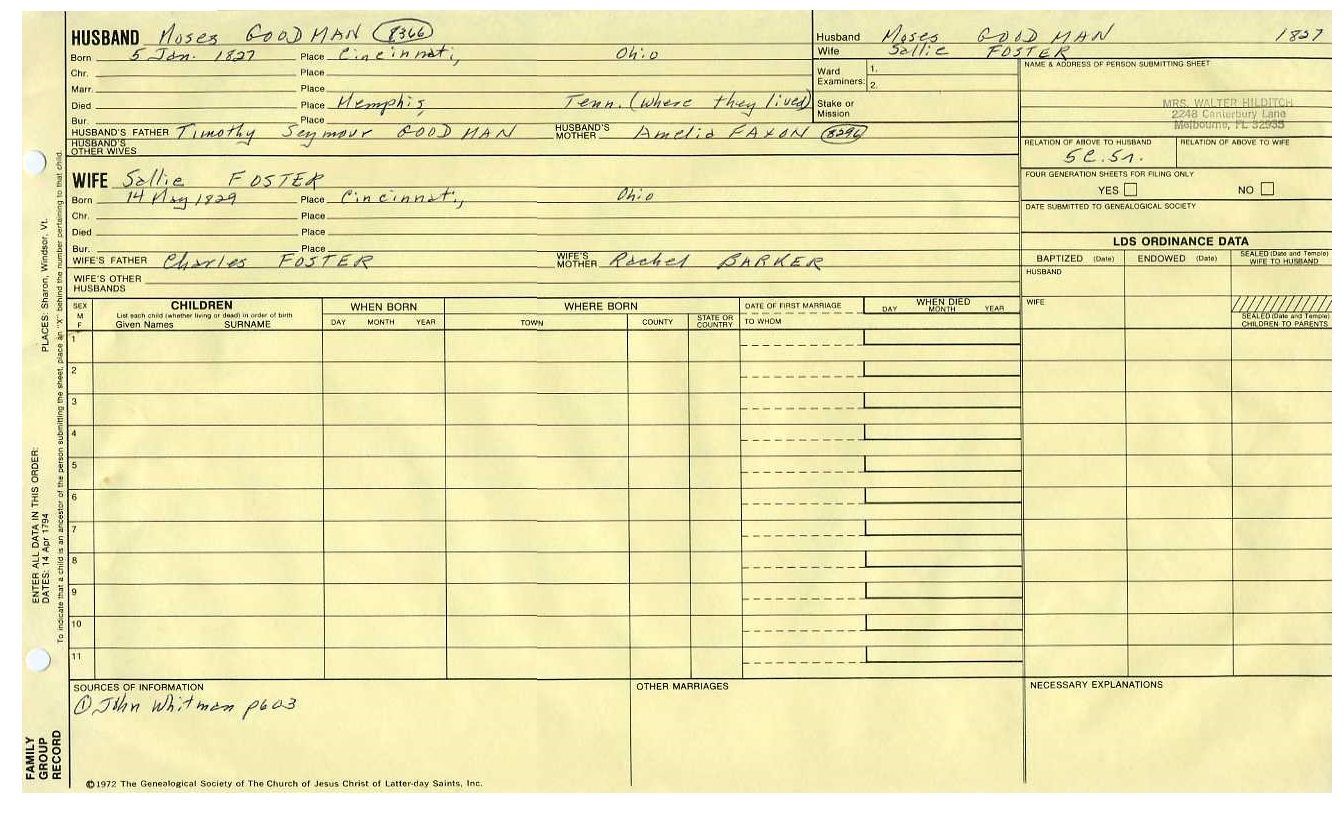 HUSBAND Moses GOODMAN (8366)
Born 5 Jan. 1827 Place Cincinnati, Ohio
Chr. Place
Marr. Place
Died Place Memphis, Tenn. (where they lived)
Bur. Place
HUSBAND'S FATHER Timothy Seymour GOODMAN HUSBAND'S MOTHER Amelia FAXON (8296)
HUSBAND'S OTHER WIVES
WIFE Sallie FOSTER
Born 14 May 1829 Place Cincinnati, Ohio
Chr. Place
Died Place
Bur. Place
WIFE'S FATHER Charles FOSTER WIFE'S MOTHER Rachel BARKER
WIFE'S OTHER HUSBANDS
Husband Moses GOODMAN 1827
Wife Sallie FOSTER
Ward Examiners: 1.
2.
Stake or Mission
NAME & ADDRESS OF PERSON SUBMITTING SHEET
MRS. WALTER HILDITCH
2248 Canterbury Lane
Melbourne, FL 32935
RELATION OF ABOVE TO HUSBAND RELATION OF ABOVE TO WIFE
5C.5r.
FOUR GENERATION SHEETS FOR FILING ONLY
YES NO
DATE SUBMITTED TO GENEALOGICAL SOCIETY
LDS ORDINANCE DATA
BAPTIZED (Date) ENDOWED (Date) SEALED (Date and Temple) WIFE TO HUSBAND
HUSBAND
WIFE
SEALED (Date and Temple) CHILDREN TO PARENTS
SEX M F
CHILDREN
List each child (whether living or dead) in order of birth
Given Names SURNAME
WHEN BORN
DAY MONTH YEAR
WHERE BORN
TOWN COUNTY STATE OR COUNTRY
DATE OF FIRST MARRIAGE
TO WHOM
WHEN DIED
DAY MONTH YEAR
1
2
3
4
5
6
7
8
9
10
11
SOURCES OF INFORMATION
① John Whitman p603
OTHER MARRIAGES
NECESSARY EXPLANATIONS
©1972 The Genealogical Society of The Church of Jesus Christ of Latter-day Saints, Inc.
FAMILY GROUP RECORD
ENTER ALL DATA IN THIS ORDER:
DATES: 14 Apr 1794
PLACES: Sharon, Windsor, Vt.
To indicate that a child is an ancestor of the person submitting the sheet, place an "X" behind the number pertaining to that child.